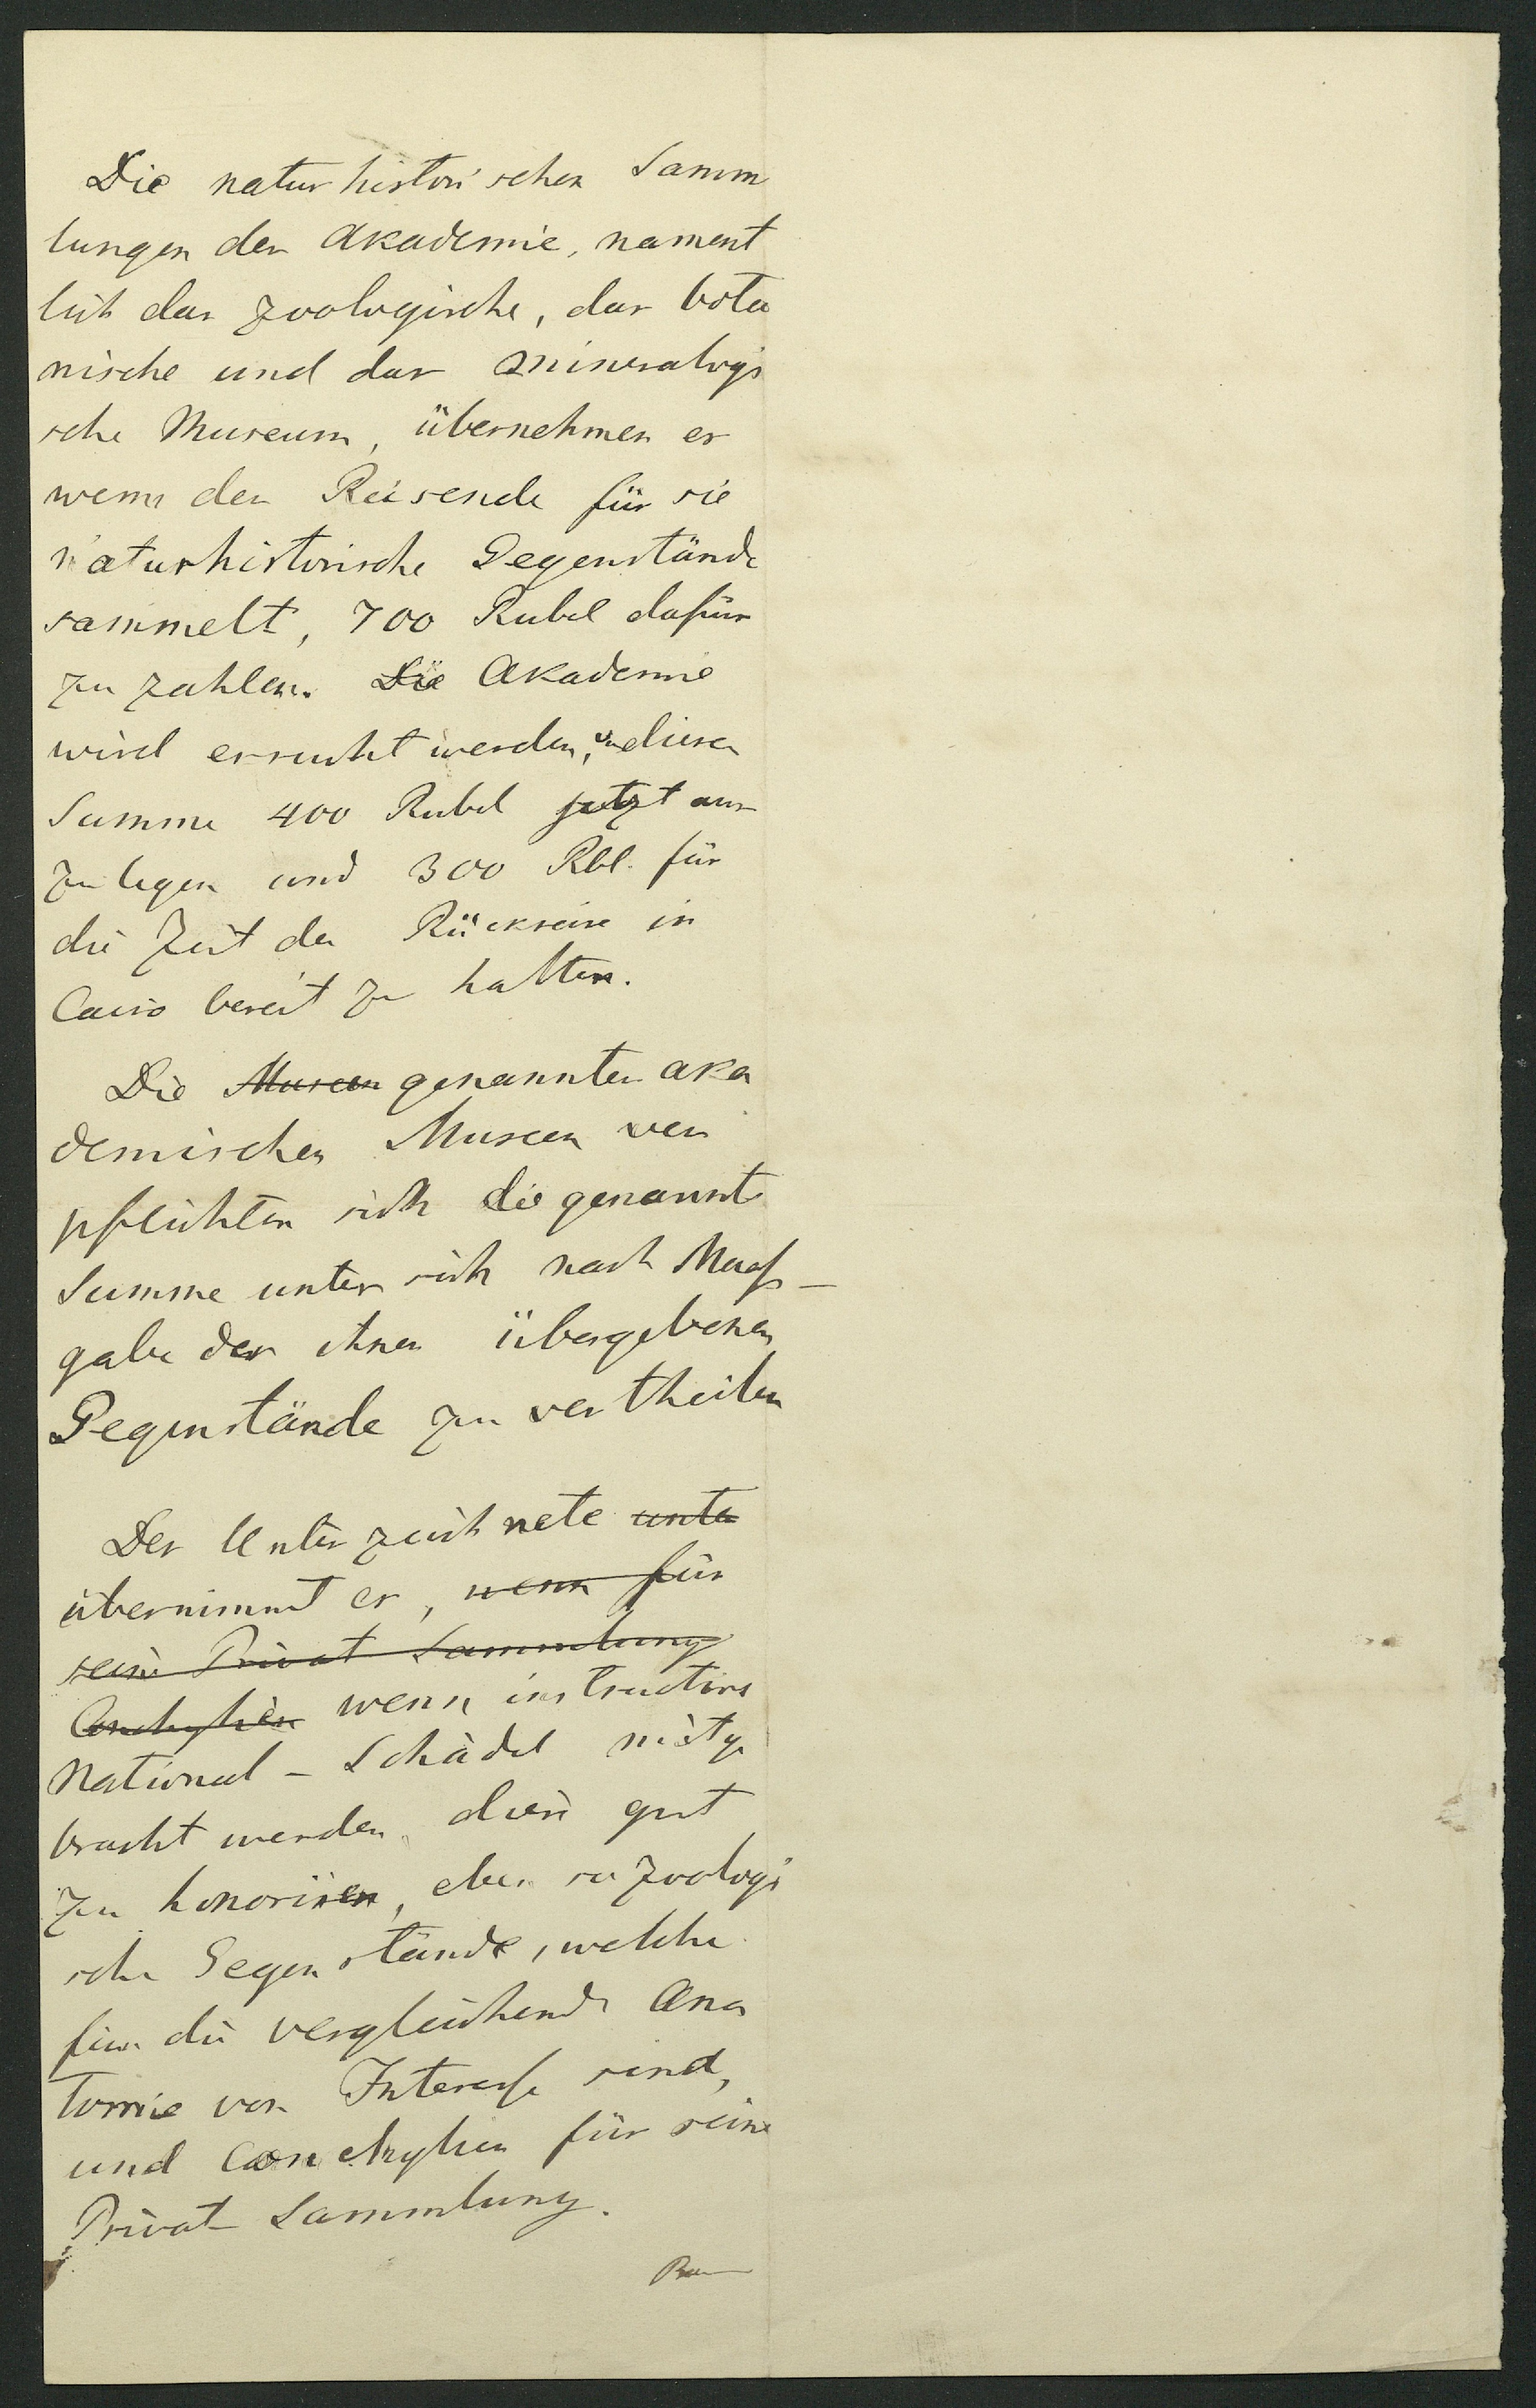 Die naturhistorischen Samm
lungen der Akademie, nament
lich das zoologische, das bota
nische und das Mineralogi
sche Museum, übernehmen es
wenn der Reisende für sie
naturhistorische Gegenstände
sammelt, 700 Rubel dafür
zu zahlen. Die Akademie
wird ersucht werden, von dieser
Summe 400 Rubel jetzt aus
zulegen und 300 Rbl. für
die Zeit der Rückreise in
Cairo bereit zu halten.
Die Museen genannten aka
demischen Museen ver
pflichten sich die genannte
Summe unter sich nach Maaß-
gabe der ihnen übergebenen
Gegenstände zu vertheilen
Der Unterzeichnete unter
übernimmt es, wenn für
seine Privat Sammlung
Conchylien wenn instructive
National-Schädel mitge
bracht werden, diese gut
zu honoriren, eben so zoologi
sche Gegenstände, welche
für die vergleichende Ana
tomie von Interesse sind,
und Conchylien für seine
Privat Sammlung.